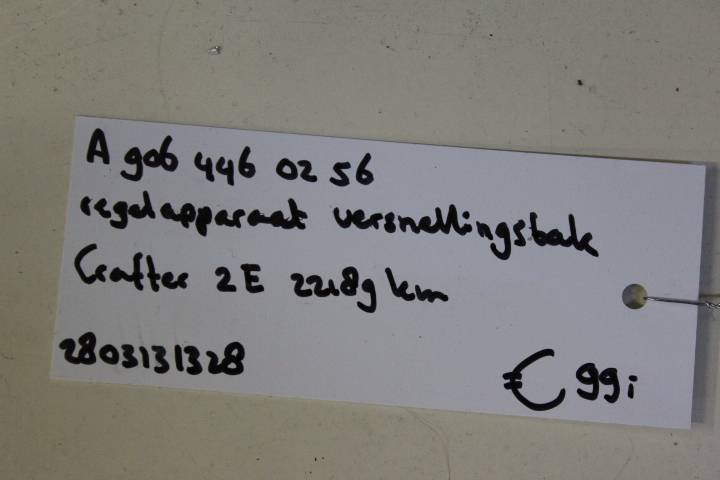 A 906 446 02 56
regelapparaat versnellingsbak
Crafter 2E 22189 km
2803131328
€ 99,